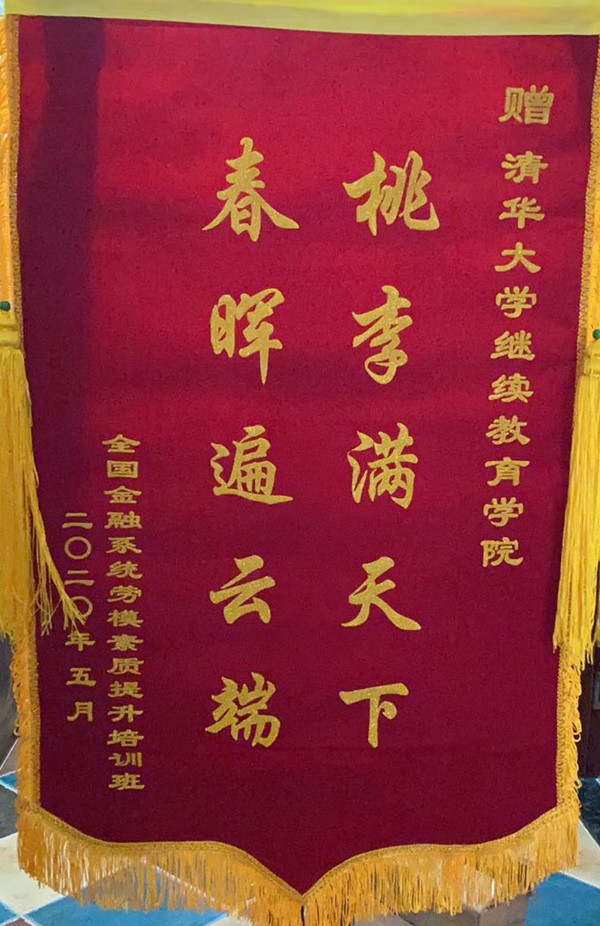 赠清华大学继续教育学院
桃李满天下
春晖遍云端
全国金融系统劳模素质提升培训班
二〇二〇年五月